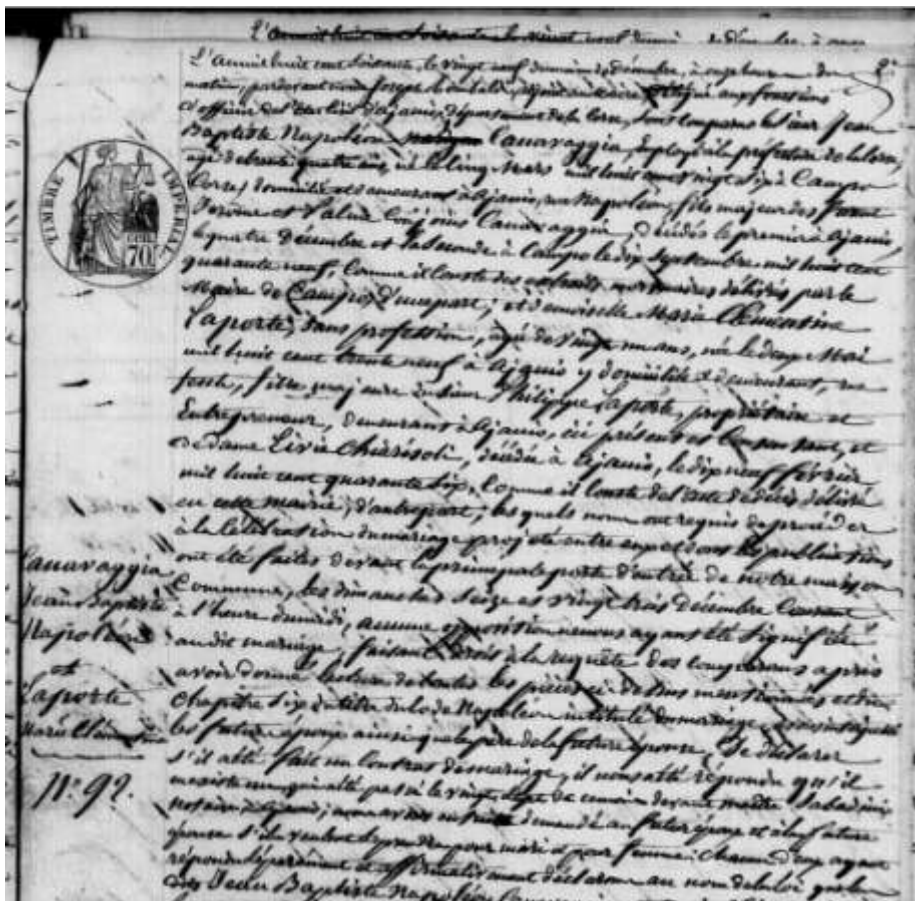 L'an mil huit cent soixante, le vingt neuf du mois de décembre, à onze heures du
matin, pardevant nous Joseph adjoint au maire, délégué aux fonctions
d'officier de l'état civil d'Ajaccio, département de la Corse, sont comparus le sieur Jean
Baptiste Napoléon Canavaggia, employé à la préfecture de la Corse,
âgé de trente quatre ans, né le cinq Mars mil huit cent vingt six à Campo
(Corse) domicilié et demeurant à Ajaccio, rue Napoléon, fils majeur des
Jérome et conjoints Canavaggia, décédés le premier à Ajaccio,
le quatre Décembre et la seconde à Campo le dix Septembre mil huit cent
quarante neuf, comme il conste des extraits mortuaires délivrés par le
Maire de Campo, d'une part; et demoiselle Marie Clémentine
Laporte, sans profession, agée de vingt un ans, née le deux Mai
mil huit cent trente neuf à Ajaccio y domiciliée et demeurant, rue
fesch, fille majeure du sieur Philippe Laporte, propriétaire et
Entrepreneur, demeurant à Ajaccio, ici présent et consentant, et
de dame Livie Chiarisoli, décédée à Ajaccio, le dix neuf février
mil huit cent quarante six, comme il conste de l'acte de décès délivré
en cette mairie, d'autre part; les quels nous ont requis de procéder
à la célébration du mariage projeté entre eux et dont les publications
ont été faites devant la principale porte d'entrée de notre maison
Commune, les dimanches Seize et vingt trois décembre Courant
à l'heure de midi, aucune opposition ne nous ayant été signifiée
au dit mariage, faisant droit à la requête des comparans après
avoir donné lecture de toutes les pièces ci-dessus mentionnées et du
Chapitre six du titre du code Napoléon intitulé du mariage,
les futurs époux ainsi que le père de la future épouse, de déclarer
s'il a été fait un contrat de mariage, il nous a été répondu qu'il
en existe un qui a été passé le vingt sept de ce mois devant maître
notaire à Ajaccio; nous avons ensuite demandé au futur époux et à la future
épouse s'ils veulent se prendre pour mari et pour femme: chacun d'eux ayant
répondu séparément et affirmativement déclarons au nom de la loi que les
Jean Baptiste Napoléon
TIMBRE IMPERIAL
70
Canavaggia
Jean Baptiste
Napoléon
et
Laporte
Marie Clémentine
N.° 92.